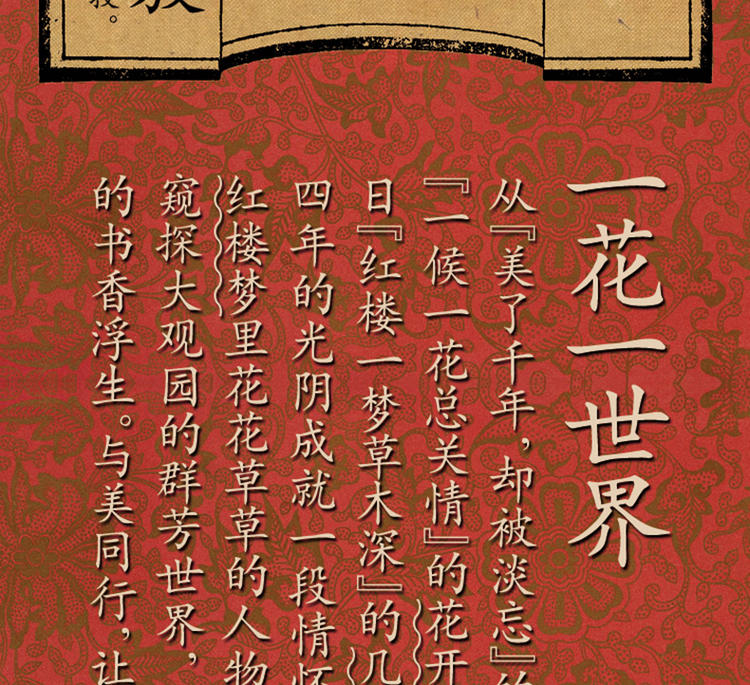 一花一世界
从『美了千年，却被淡忘』的
『一候一花总关情』的花开
日『红楼一梦草木深』的几
四年的光阴成就一段情怀
红楼梦里花花草草的人物
窥探大观园的群芳世界，
的书香浮生。与美同行，让